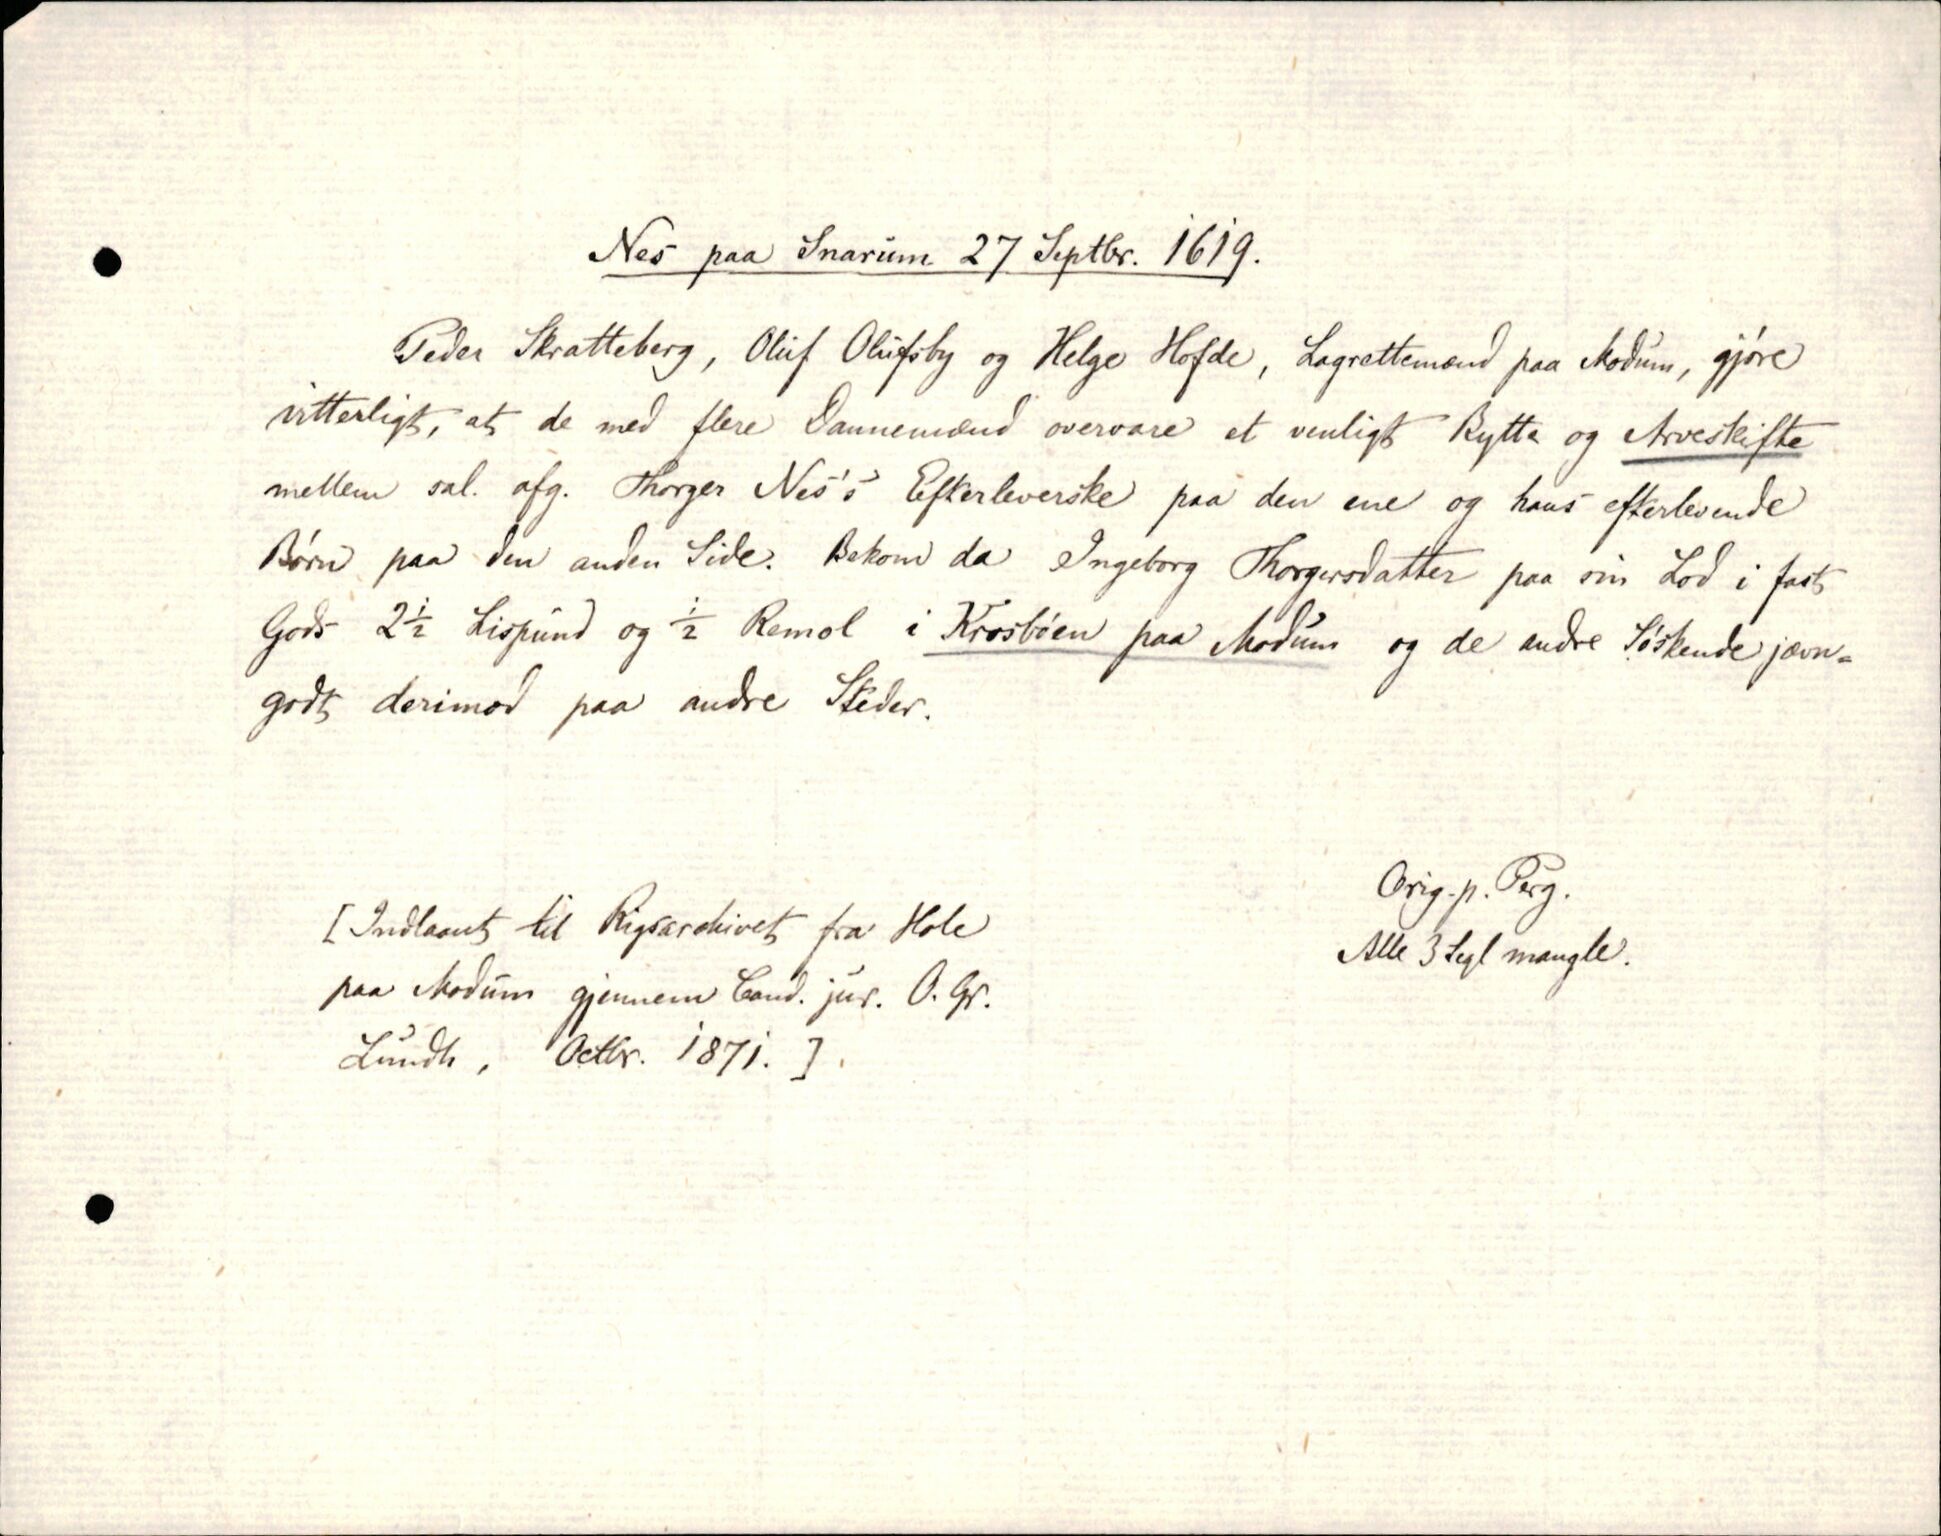 Nes paa Snarum 27 Septbr. 1619.
Peder Skratteberg, Oluf Olufsby og Helge Hofde, Lagrettemænd paa Modum, gjøre
vitterligt, at de med flere Dannemænd overvare et venligt Bytte og Arveskifte
mellem sal. afg. Thorger Nes's Efterleverske paa den ene og hans efterlevende
Børn paa den anden Side. Bekom da Ingeborg Thorgersdatter paa sin Lod i fast
Gods 2½ Lispund og ½ Remol i Krosbøen paa Modum og de andre Søskende jævn=
godt derimod paa andre Steder.
Orig. p. Perg.
Alle 3 Segl mangle.
[Indlaant til Rigsarchivet fra Hole
paa Modum gjennem Cand. jur. O. Gr.
Lundh, Octbr. 1871.]